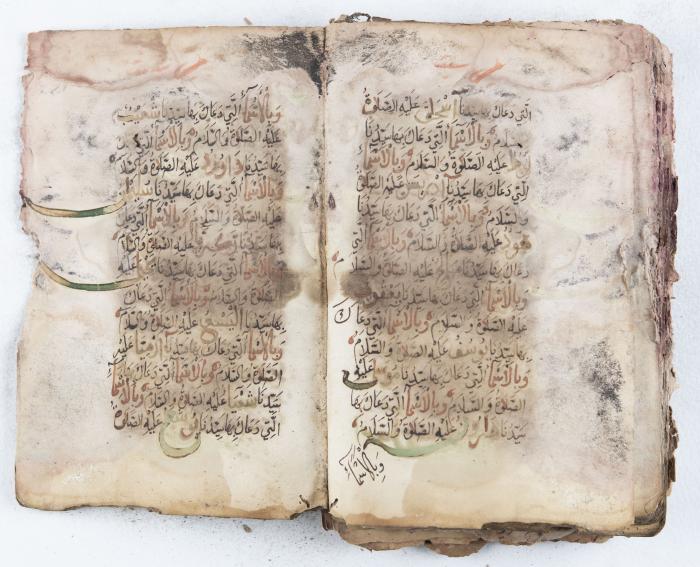 التي دعاك بها سيدنا اسحاق عليه الصلاة
والسلام وبالاسماء التي دعاك بها سيدنا
لوط عليه الصلاة والسلام وبالاسماء
التي دعاك بها سيدنا ادريس عليه الصلاة
والسلام وبالاسماء التي دعاك بها سيدنا
هود عليه الصلاة والسلام وبالاسماء
التي دعاك بها سيدنا عليه الصلاة والسلام
وبالاسماء التي دعاك بها سيدنا يعقوب
عليه الصلاة والسلام وبالاسماء التي دعاك
بها سيدنا يوسف عليه الصلاة والسلام
وبالاسماء التي دعاك بها سيدنا موسى عليه
الصلاة والسلام وبالاسماء التي دعاك بها
سيدنا هارون عليه الصلاة والسلام
وبالاسماء
وبالاسماء التي دعاك بها سيدنا شعيب
عليه الصلاة والسلام وبالاسماء التي دعاك
بها سيدنا داوود عليه الصلاة والسلام
وبالاسماء التي دعاك بها سيدنا سليمان
عليه الصلاة والسلام وبالاسماء التي دعاك
بها سيدنا زكريا عليه الصلاة والسلام
وبالاسماء التي دعاك بها سيدنا يحيى عليه
الصلاة والسلام وبالاسماء التي دعاك
بها سيدنا اليسع عليه الصلاة والسلام
وبالاسماء التي دعاك بها سيدنا ارميا عليه
الصلاة والسلام وبالاسماء التي دعاك بها
سيدنا شعيا عليه الصلاة والسلام وبالاسماء
التي دعاك بها سيدنا عليه الصلاة